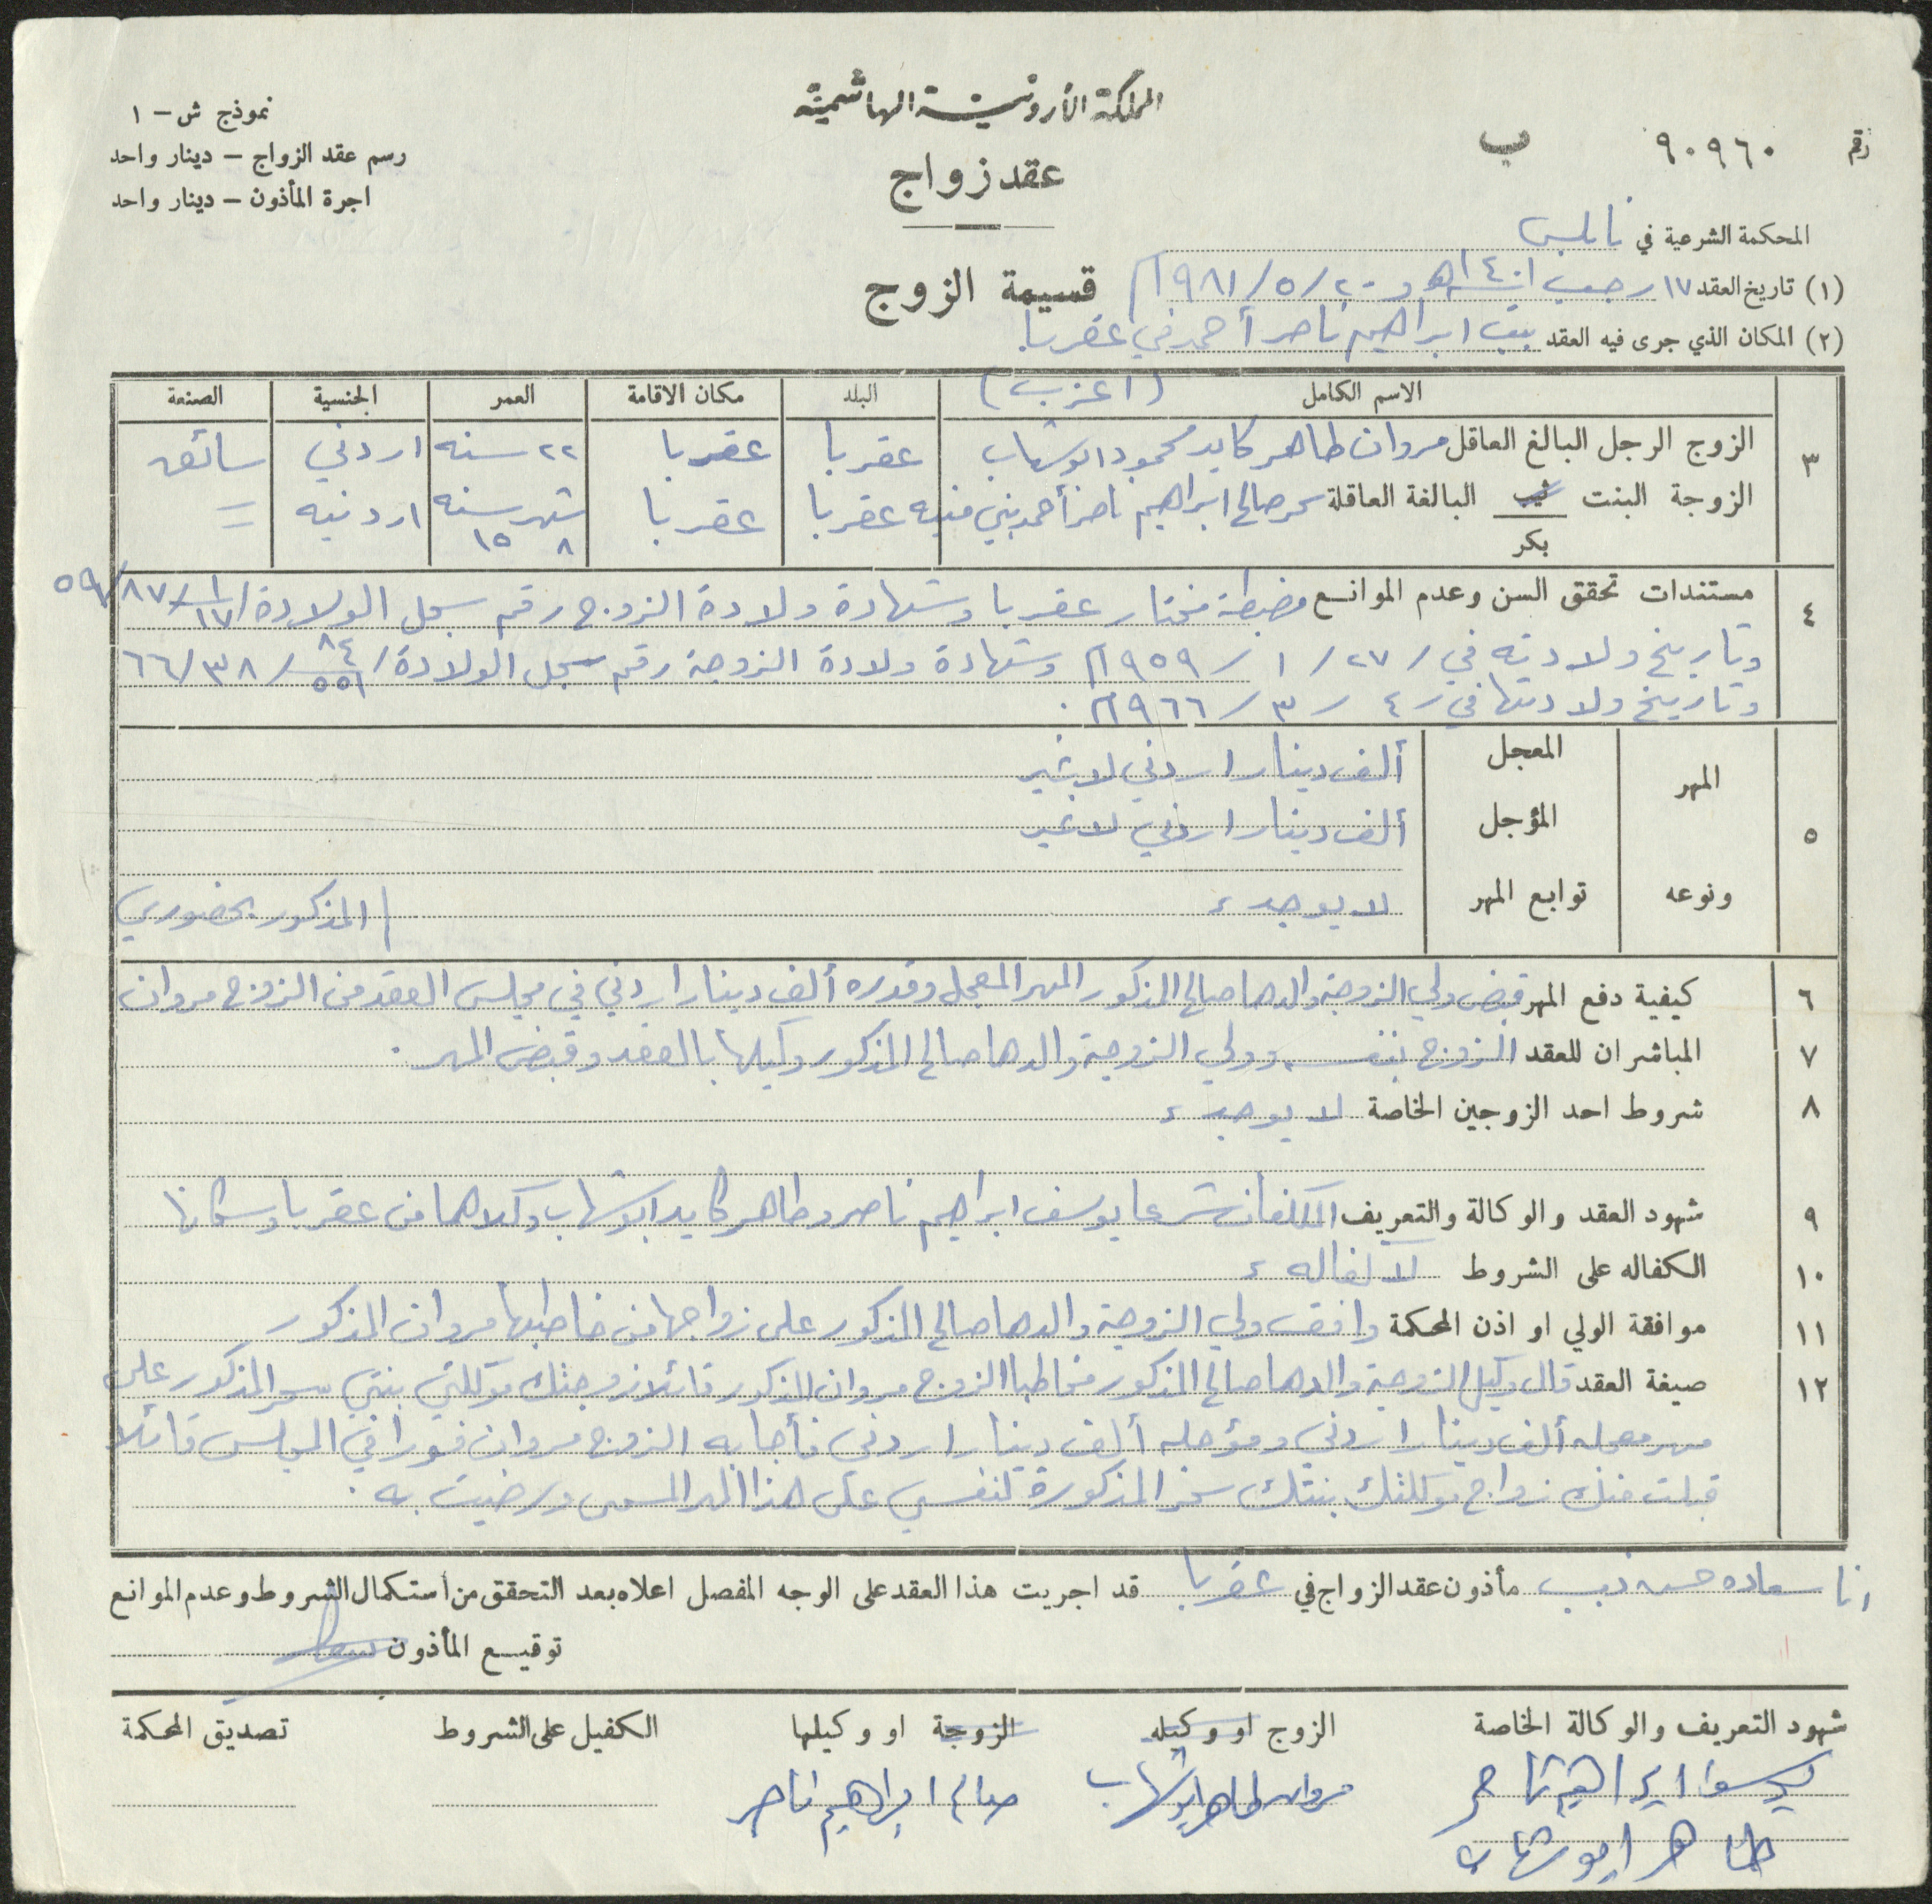 المملكة الأردنية الهاشمية
نموذج ش - ١
رسم عقد الزواج - دينار واحد
اجرة المأذون - دينار واحد
عقد زواج
رقم ٩٠٩٦٠ ب
المحكمة الشرعية في نابلس
(١) تاريخ العقد ١٧ رجب ١٤٠١هـ و ٢٠/٥/١٩٨١م
قسيمة الزوج
(٢) المكان الذي جرى فيه العقد بيت ابراهيم ناصر أحمد في عقربا.
الاسم الكامل (اعزب) البلد مكان الاقامة العمر الجنسية الصنعة
٣ الزوج الرجل البالغ العاقل مروان طاهر كايد محمود ابو شهاب عقربا عقربا ٢٢ سنه اردني سائق
الزوجة البنت ثيب البالغة العاقلة سحر صالح ابراهيم ناصر أحمد بني منيه عقربا عقربا شهر سنه اردنيه =
بكر ٨ ١٥
٤ مستندات تحقق السن وعدم الموانع مضبطة مختار عقربا وشهادة ولادة الزوج رقم سجل الولادة/ ١/١٧ /٨٧/٥٩
وتاريخ ولادته في / ٢٧/ ١ / ١٩٥٩م وشهادة ولادة الزوجة رقم سجل الولادة/ ٨٤/٥٥١ /٣٨/٦٦
وتاريخ ولادتها في / ٤ / ٣ / ١٩٦٦م.
٥ المهر المعجل ألف دينار اردني لا غير
المؤجل ألف دينار اردني لا غير
ونوعه توابع المهر لا يوجد ء
المذكور بحضوري
٦ كيفية دفع المهر قبض ولي الزوجة والدها صالح المذكور المهر المعجل وقدره ألف دينار اردني في مجلس العقد من الزوج مروان
٧ المباشران للعقد الزوج بنفسه وولي الزوجة والدها صالح المذكور وكيلها بالعقد وقبض المهر.
٨ شروط احد الزوجين الخاصة لا يوجد ء
٩ شهود العقد والوكالة والتعريف المكلفان شرعا يوسف ابراهيم ناصر وطاهر كايد ابو شهاب وكلاهما من عقربا وسكانها
١٠ الكفاله على الشروط لا كفاله ء
١١ موافقة الولي او اذن المحكمة وافق ولي الزوجة والدها صالح المذكور على زواجها من خاطبها مروان المذكور
١٢ صيغة العقد قال وكيل الزوجة والدها صالح المذكور مخاطبا الزوج مروان المذكور قائلا زوجتك موكلتي بنتي سحر المذكور على
مهر معجله ألف دينار اردني ومؤجله ألف دينار اردني فأجابه الزوج مروان فورا في المجلس قائلا
قبلت منك زواج موكلتك بنتك سحر المذكورة لنفسي على هذا المهر المسمى ورضيت به.
انا سعاده حسن ذيب مأذون عقد الزواج في عقربا قد اجريت هذا العقد على الوجه المفصل اعلاه بعد التحقق من أستكمال الشروط وعدم الموانع
توقيع المأذون
شهود التعريف والوكالة الخاصة الزوج او وكيله الزوجة او وكيلها الكفيل على الشروط تصديق المحكمة
يوسف ابراهيم ناصر مروان طاهر ابو شهاب صالح ابراهيم ناصر
طاهر ابو شهاب